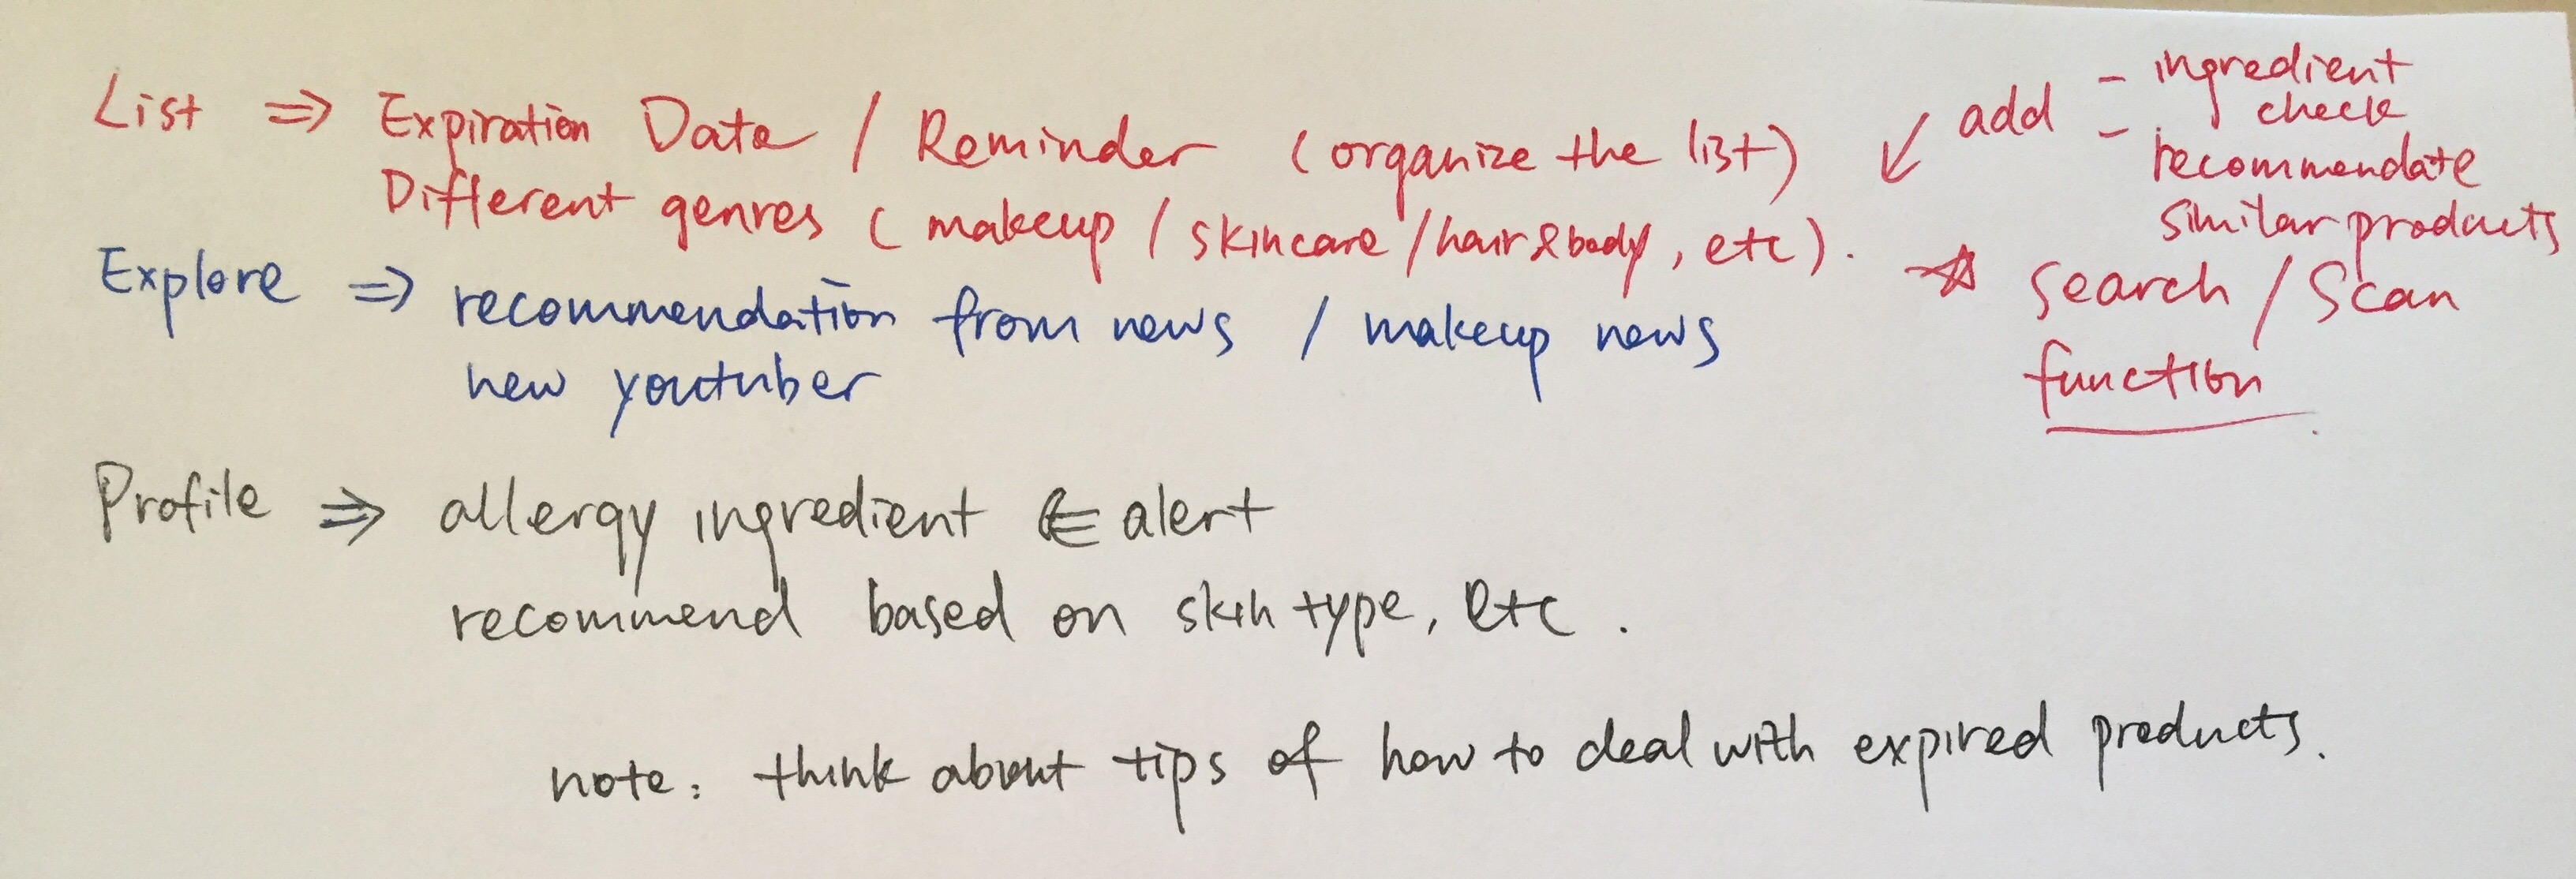 List ⇒ Expiration Date / Reminder (organize the list)
Different genres ( makeup / skincare / hair&body, etc).
↙ add - ingredient
check
- recommendate
similar products
→☆ Search / Scan
function
Explore ⇒ recommendation from news / makeup news
new youtuber
Profile ⇒ allergy ingredient ⇐ alert
recommend based on skin type, etc.
note: think about tips of how to deal with expired products.